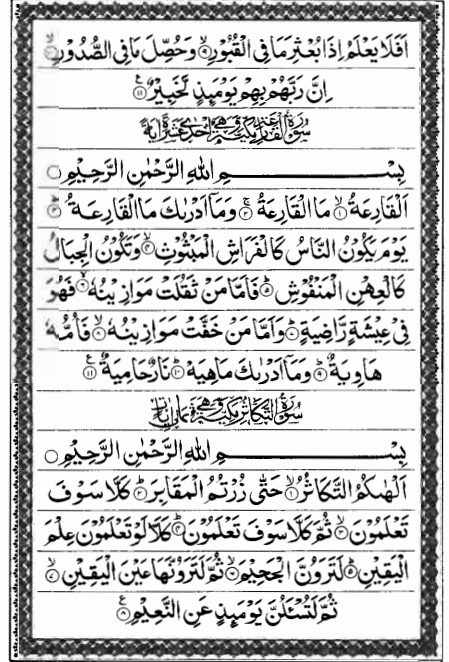 اَفَلَا يَعْلَمُ اِذَا بُعْثِرَ مَا فِی الْقُبُوْرِ ۙ﴿۹﴾ وَحُصِّلَ مَا فِی الصُّدُوْرِ ۙ﴿۱۰﴾
اِنَّ رَبَّهُمْ بِهِمْ يَوْمَىِٕذٍ لَّخَبِيْرٌ ﴿۱۱﴾
سُوْرَةُ الْقَارِعَةِ مَكِّيَّةٌ وَّهِیَ اِحْدٰى عَشْرَةَ اٰيَةً
بِسْمِ اللّٰهِ الرَّحْمٰنِ الرَّحِيْمِ
اَلْقَارِعَةُ ۙ﴿۱﴾ مَا الْقَارِعَةُ ۚ﴿۲﴾ وَمَاۤ اَدْرٰىكَ مَا الْقَارِعَةُ ؕ﴿۳﴾
يَوْمَ يَكُوْنُ النَّاسُ كَالْفَرَاشِ الْمَبْثُوْثِ ۙ﴿۴﴾ وَتَكُوْنُ الْجِبَالُ
كَالْعِهْنِ الْمَنْفُوْشِ ؕ﴿۵﴾ فَاَمَّا مَنْ ثَقُلَتْ مَوَازِيْنُهٗ ۙ﴿۶﴾ فَهُوَ
فِیْ عِيْشَةٍ رَّاضِيَةٍ ؕ﴿۷﴾ وَاَمَّا مَنْ خَفَّتْ مَوَازِيْنُهٗ ۙ﴿۸﴾ فَاُمُّهٗ
هَاوِيَةٌ ؕ﴿۹﴾ وَمَاۤ اَدْرٰىكَ مَا هِيَهْ ؕ﴿۱۰﴾ نَارٌ حَامِيَةٌ ﴿۱۱﴾
سُوْرَةُ التَّكَاثُرِ مَكِّيَّةٌ وَّهِیَ ثَمَانِ اٰيَاتٍ
بِسْمِ اللّٰهِ الرَّحْمٰنِ الرَّحِيْمِ
اَلْهٰىكُمُ التَّكَاثُرُ ۙ﴿۱﴾ حَتّٰى زُرْتُمُ الْمَقَابِرَ ؕ﴿۲﴾ كَلَّا سَوْفَ
تَعْلَمُوْنَ ۙ﴿۳﴾ ثُمَّ كَلَّا سَوْفَ تَعْلَمُوْنَ ؕ﴿۴﴾ كَلَّا لَوْ تَعْلَمُوْنَ عِلْمَ
الْيَقِيْنِ ؕ﴿۵﴾ لَتَرَوُنَّ الْجَحِيْمَ ۙ﴿۶﴾ ثُمَّ لَتَرَوُنَّهَا عَيْنَ الْيَقِيْنِ ۙ﴿۷﴾
ثُمَّ لَتُسْـَٔلُنَّ يَوْمَىِٕذٍ عَنِ النَّعِيْمِ ﴿۸﴾